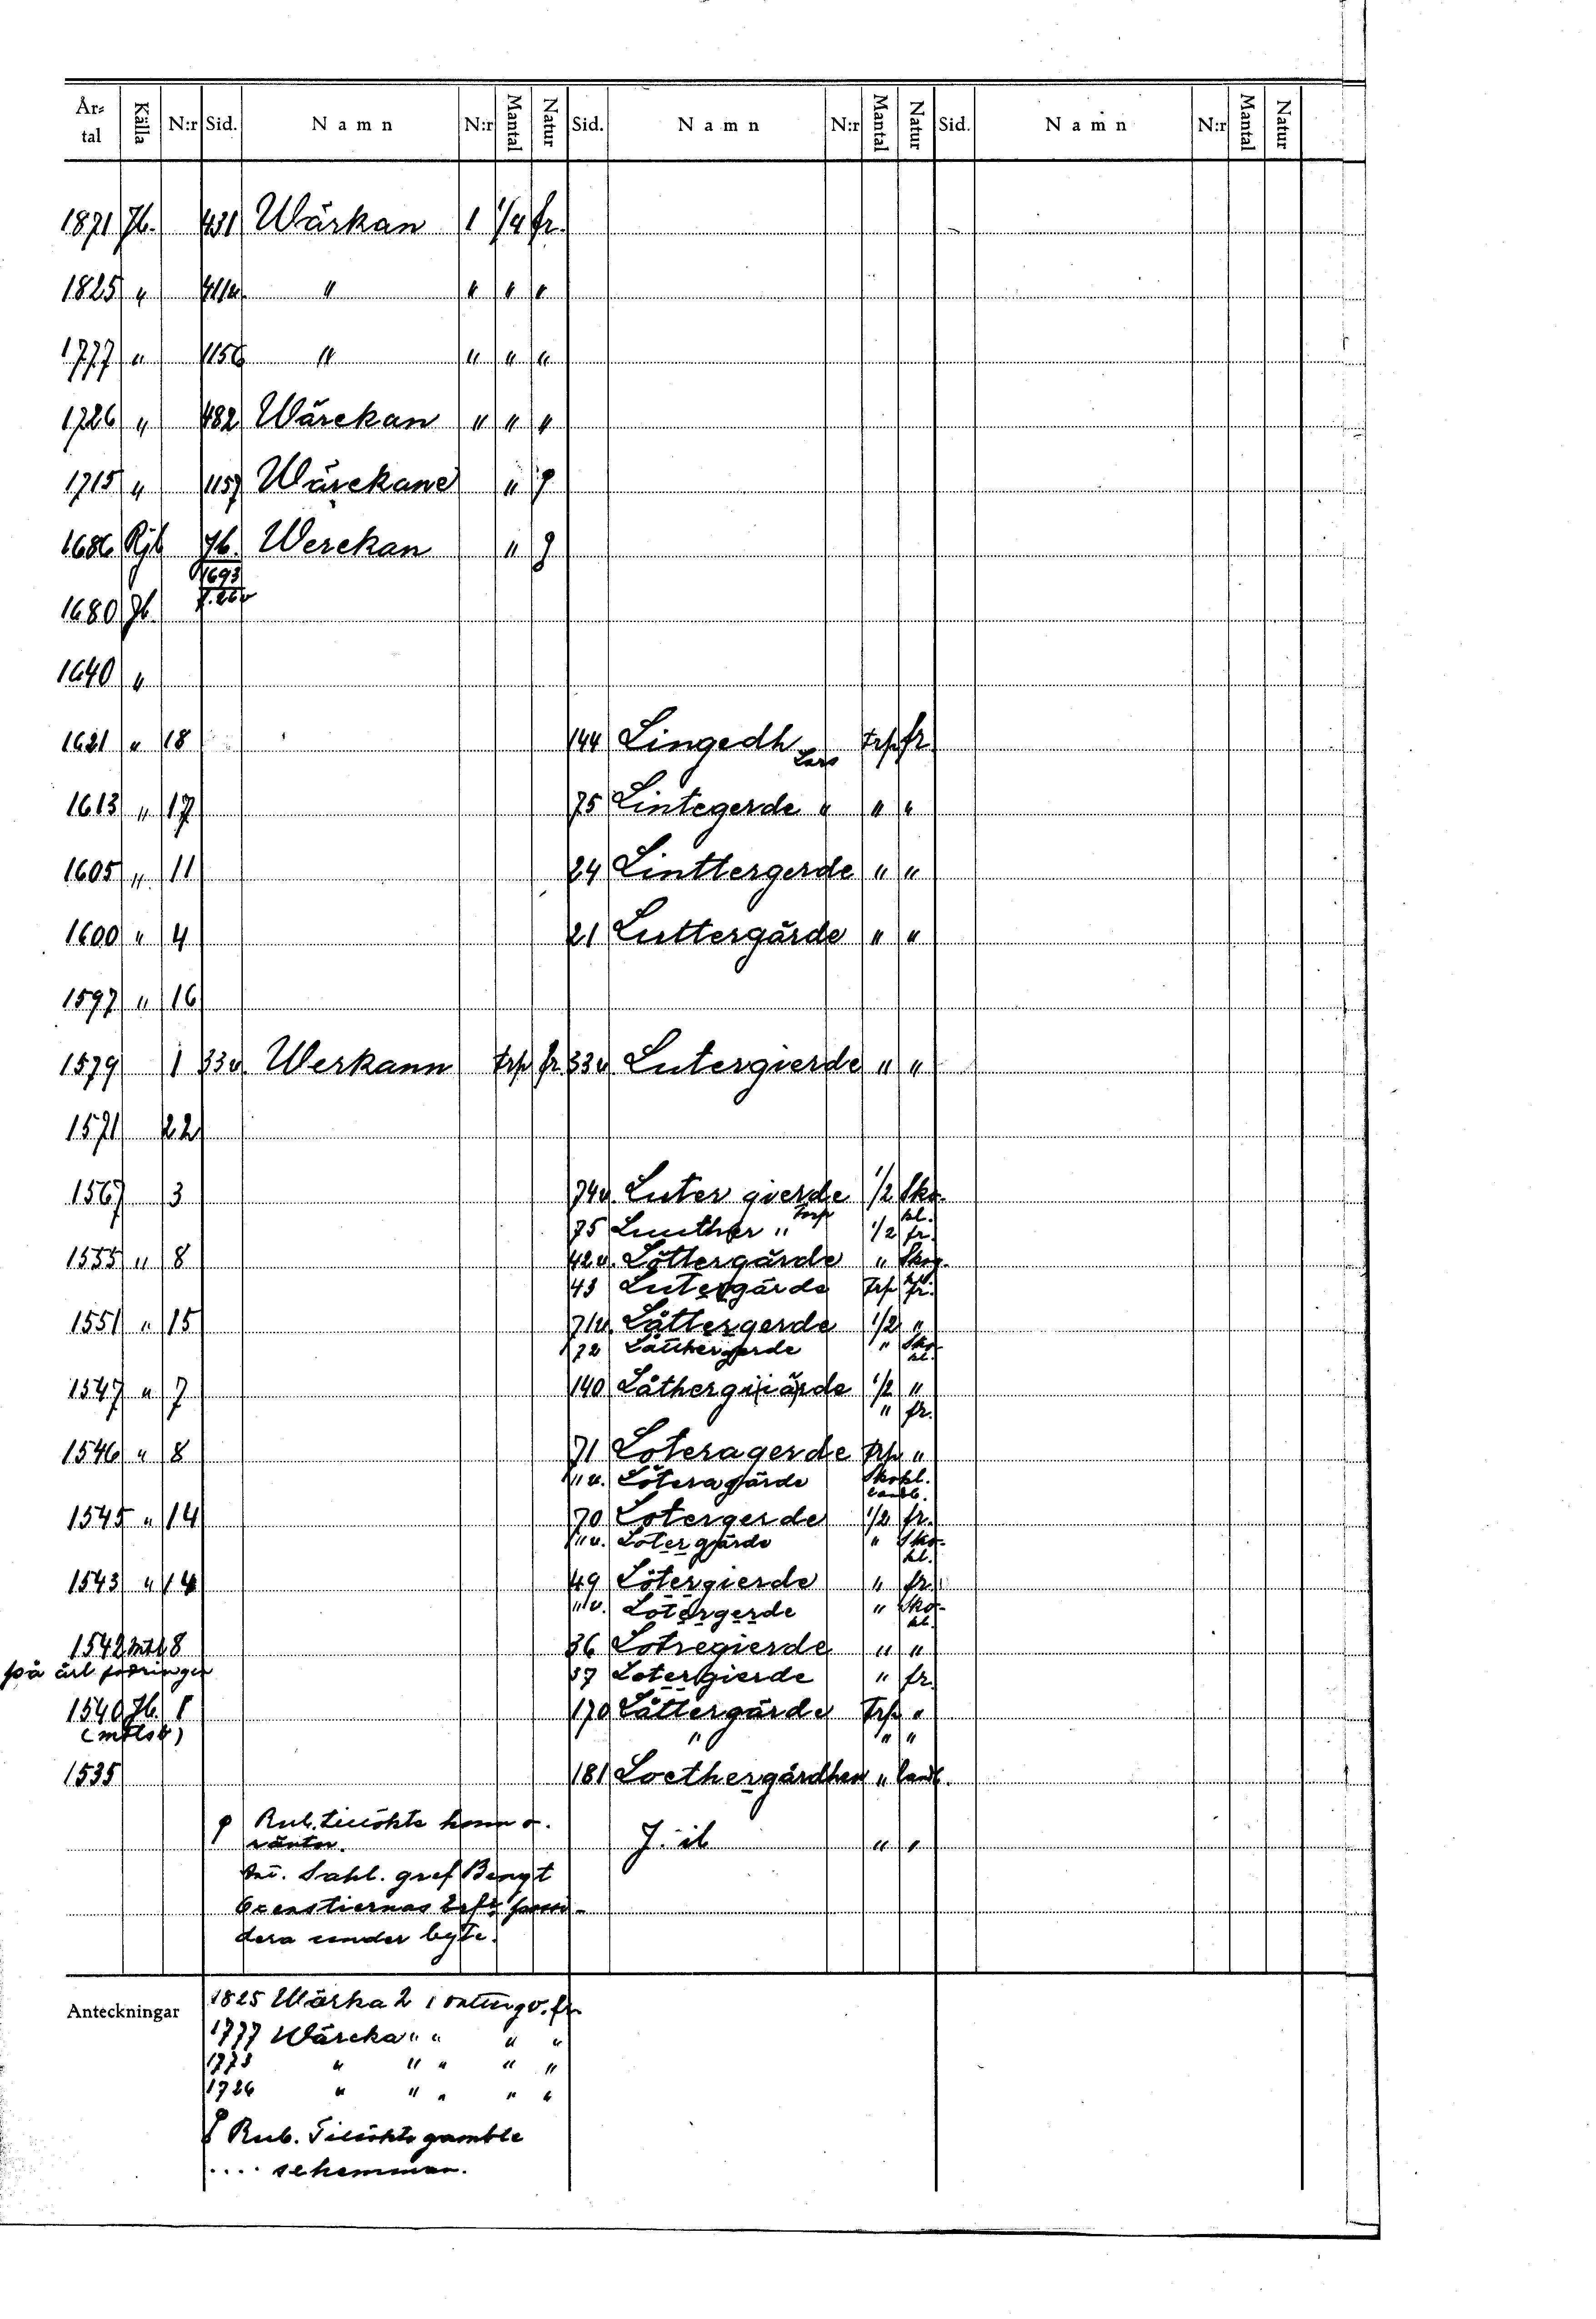 År-tal Källa N:r Sid. Namn N:r Mantal Natur Sid. Namn N:r Mantal Natur Sid. Namn N:r Mantal Natur
1871 Jb. 431 Wärkan 1 1/4 fr.
1825 " " " " "
1777 " 1156 " " " "
1726 " 482 Wärekan " " "
1715 " 1157 Wärekane "
1686 Rjb Jb. Werekan "
1693
f. 26v
1680 Jb.
1640 "
1621 " 18 144 Lingedh Lars trp fr
1613 " 17 75 Lintegerde " " "
1605 " 11 24 Linttergerde " "
1600 " 4 21 Luttergärde " "
1597 " 16
1579 1 33v. Werkann trp fr. 33v. Lutergierde " "
1571 22
1567 3 74v. Luter gierde 1/2 Sko-kl.
75 Luuther " torp 1/2 fr.
1555 " 8 42v. Löttergärde " Skog.
43 Lutergärde trp fr.
1551 " 15 71v. Låttergerde 1/2 "
72 Låtthergerde " Sko-kl.
1547 " 7 140 Låthergiärde 1/2 "
" fr.
1546 " 8 71 Loteragerde trp "
" v. Löteragärde Skokl. landb.
1545 " 14 70 Lotergerde 1/2 fr.
" v. Lotergärde " Sko-kl.
1543 " 14 49 Lötergierde " fr.
" v. Lotergerde " Sko-kl.
1542 mtl 8 36 Lotregierde " "
på årl. fodringen 37 Lotergierde " fr.
1540 Jb. 1 170 Låttergärde Trp "
(mtlsb) " " "
1535 181 Loethergårdhen " landb.
Rub. tillökte hemm o.
räntor. J. ib " "
Sahl. gref Bengt
Oxenstiernas
dera under byte.
Anteckningar
1825 Wärka 2 1 fr.
1777 Wäreka " " " "
1773 " " " " "
1726 " " " " "
Rub. Tillökte gamble
.... sehemman.